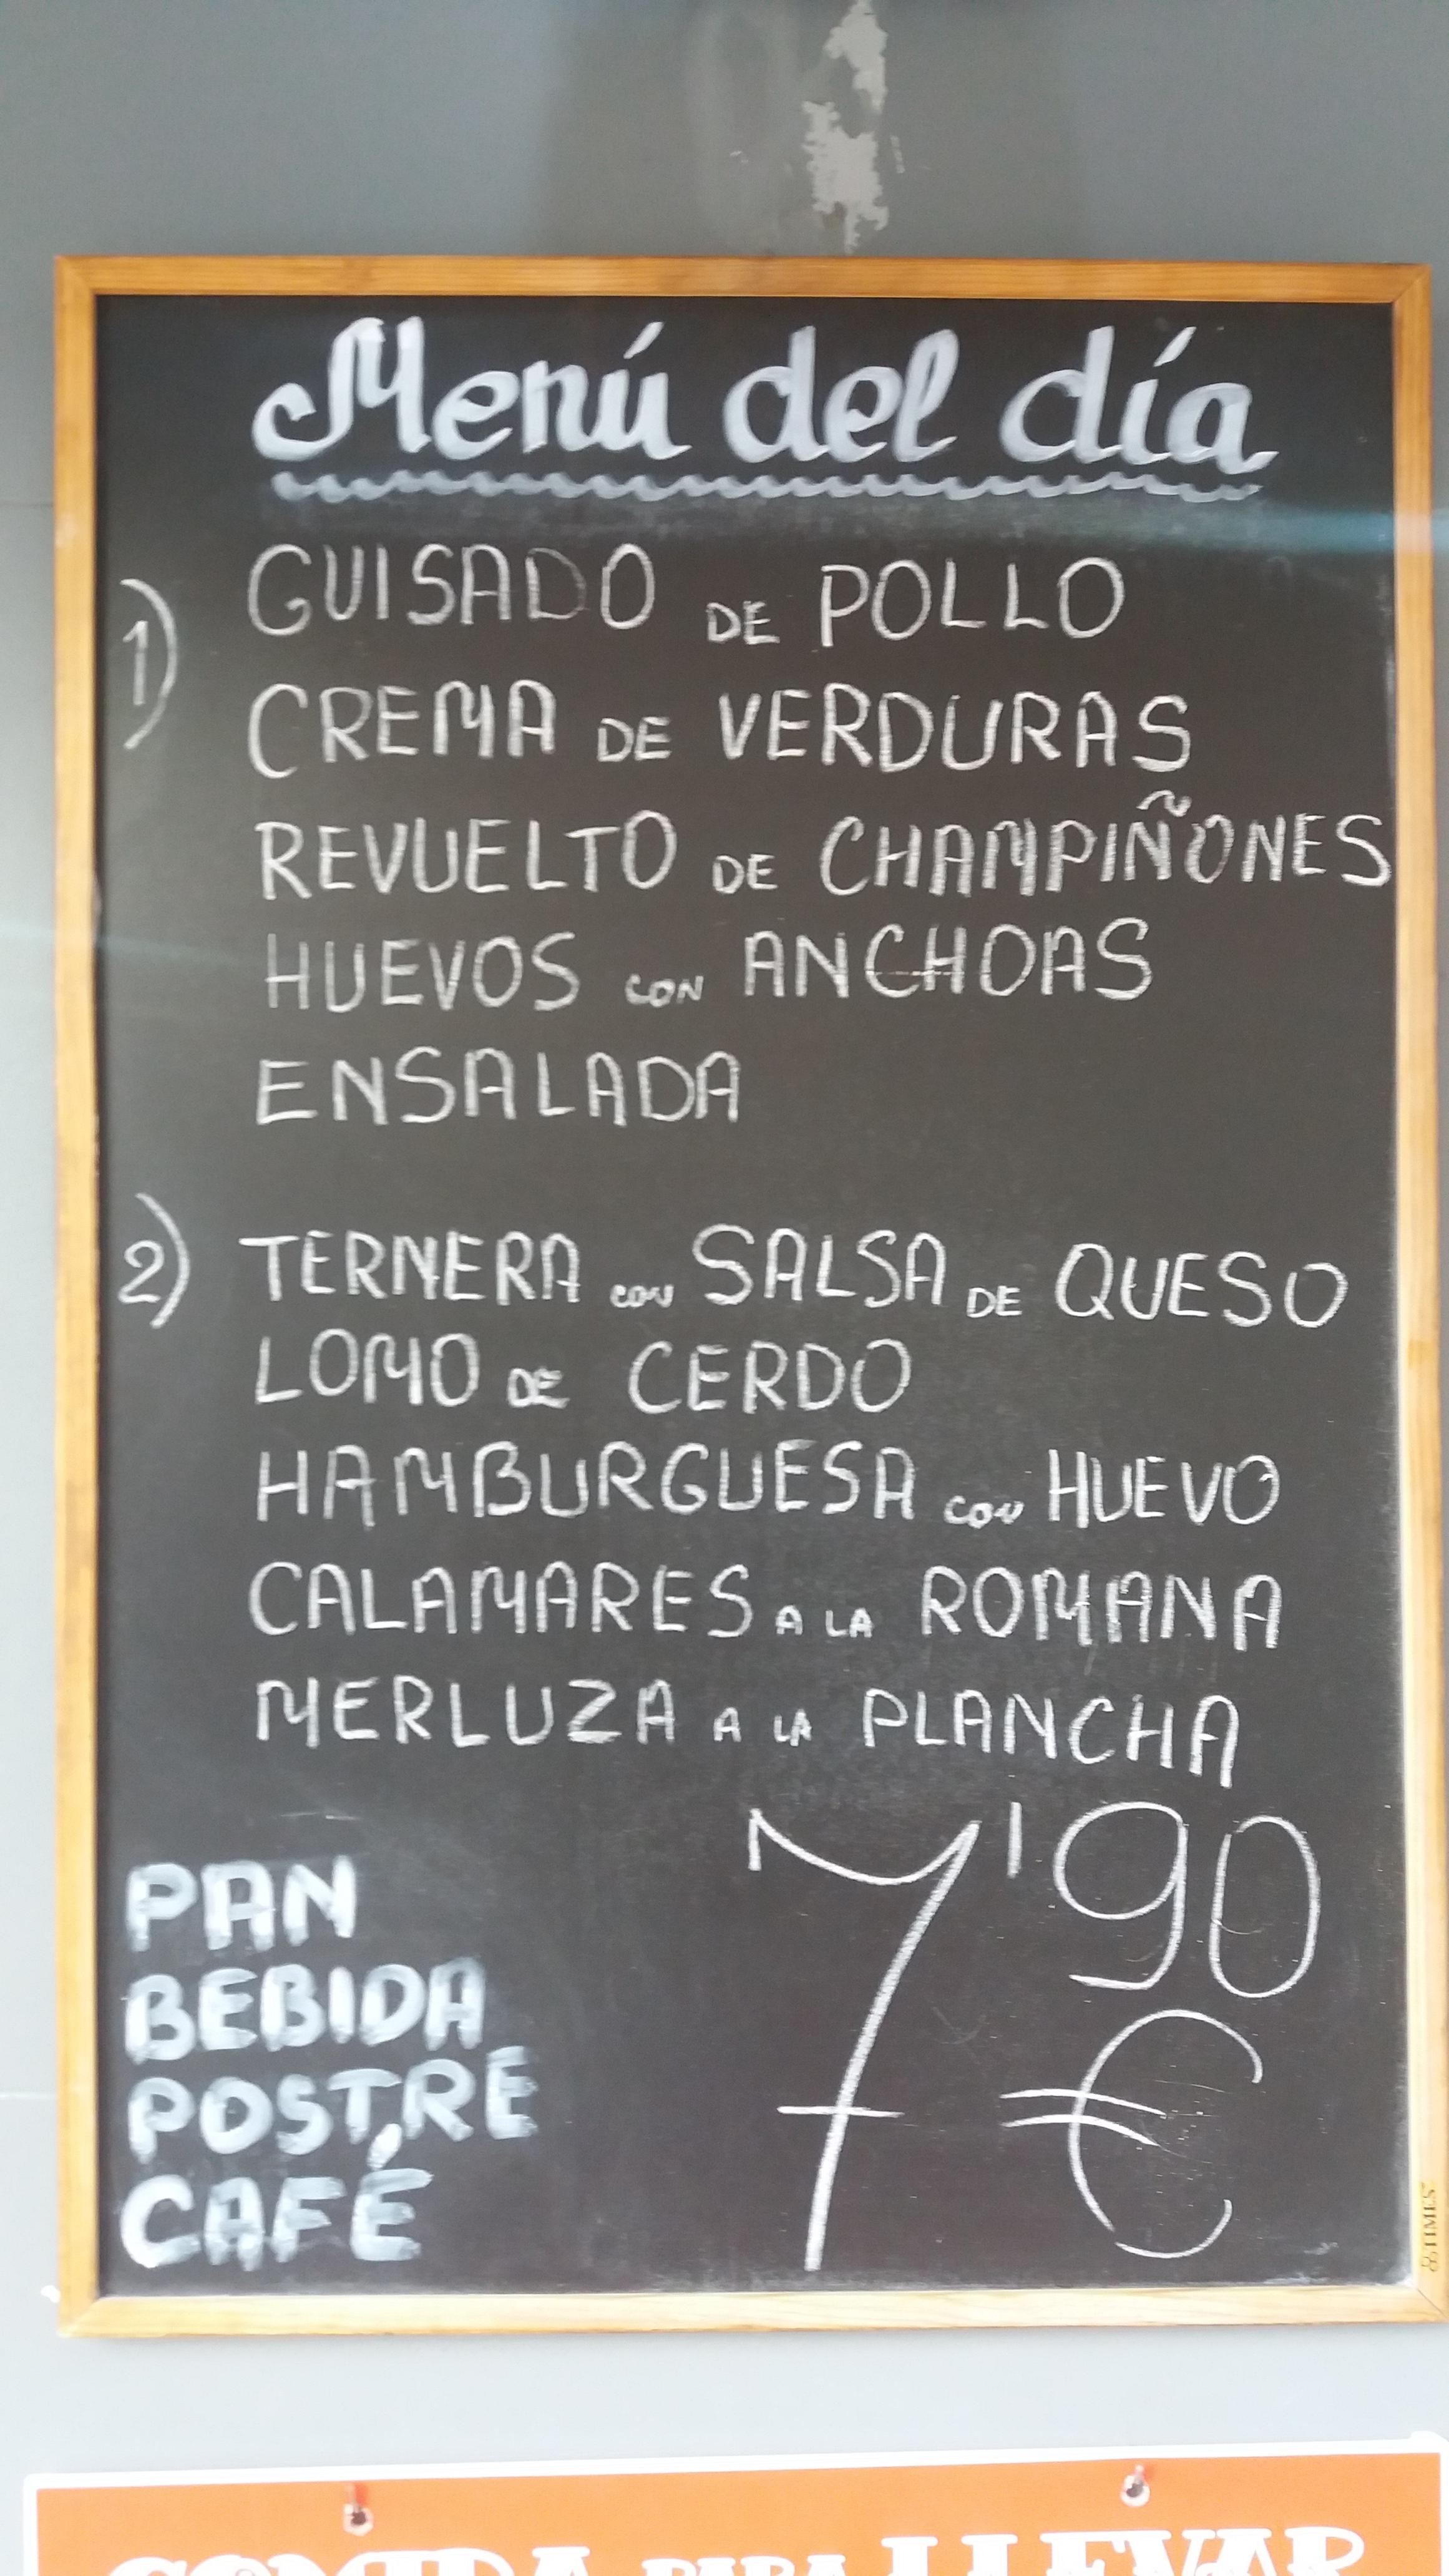 Menú del día
1) GUISADO DE POLLO
CREMA DE VERDURAS
REVUELTO DE CHAMPIÑONES
HUEVOS CON ANCHOAS
ENSALADA
2) TERNERA CON SALSA DE QUESO
LOMO DE CERDO
HAMBURGUESA CON HUEVO
CALAMARES A LA ROMANA
MERLUZA A LA PLANCHA
PAN
BEBIDA
POSTRE
CAFÉ
7'90
€
TIMES
COMIDA PARA LLEVAR